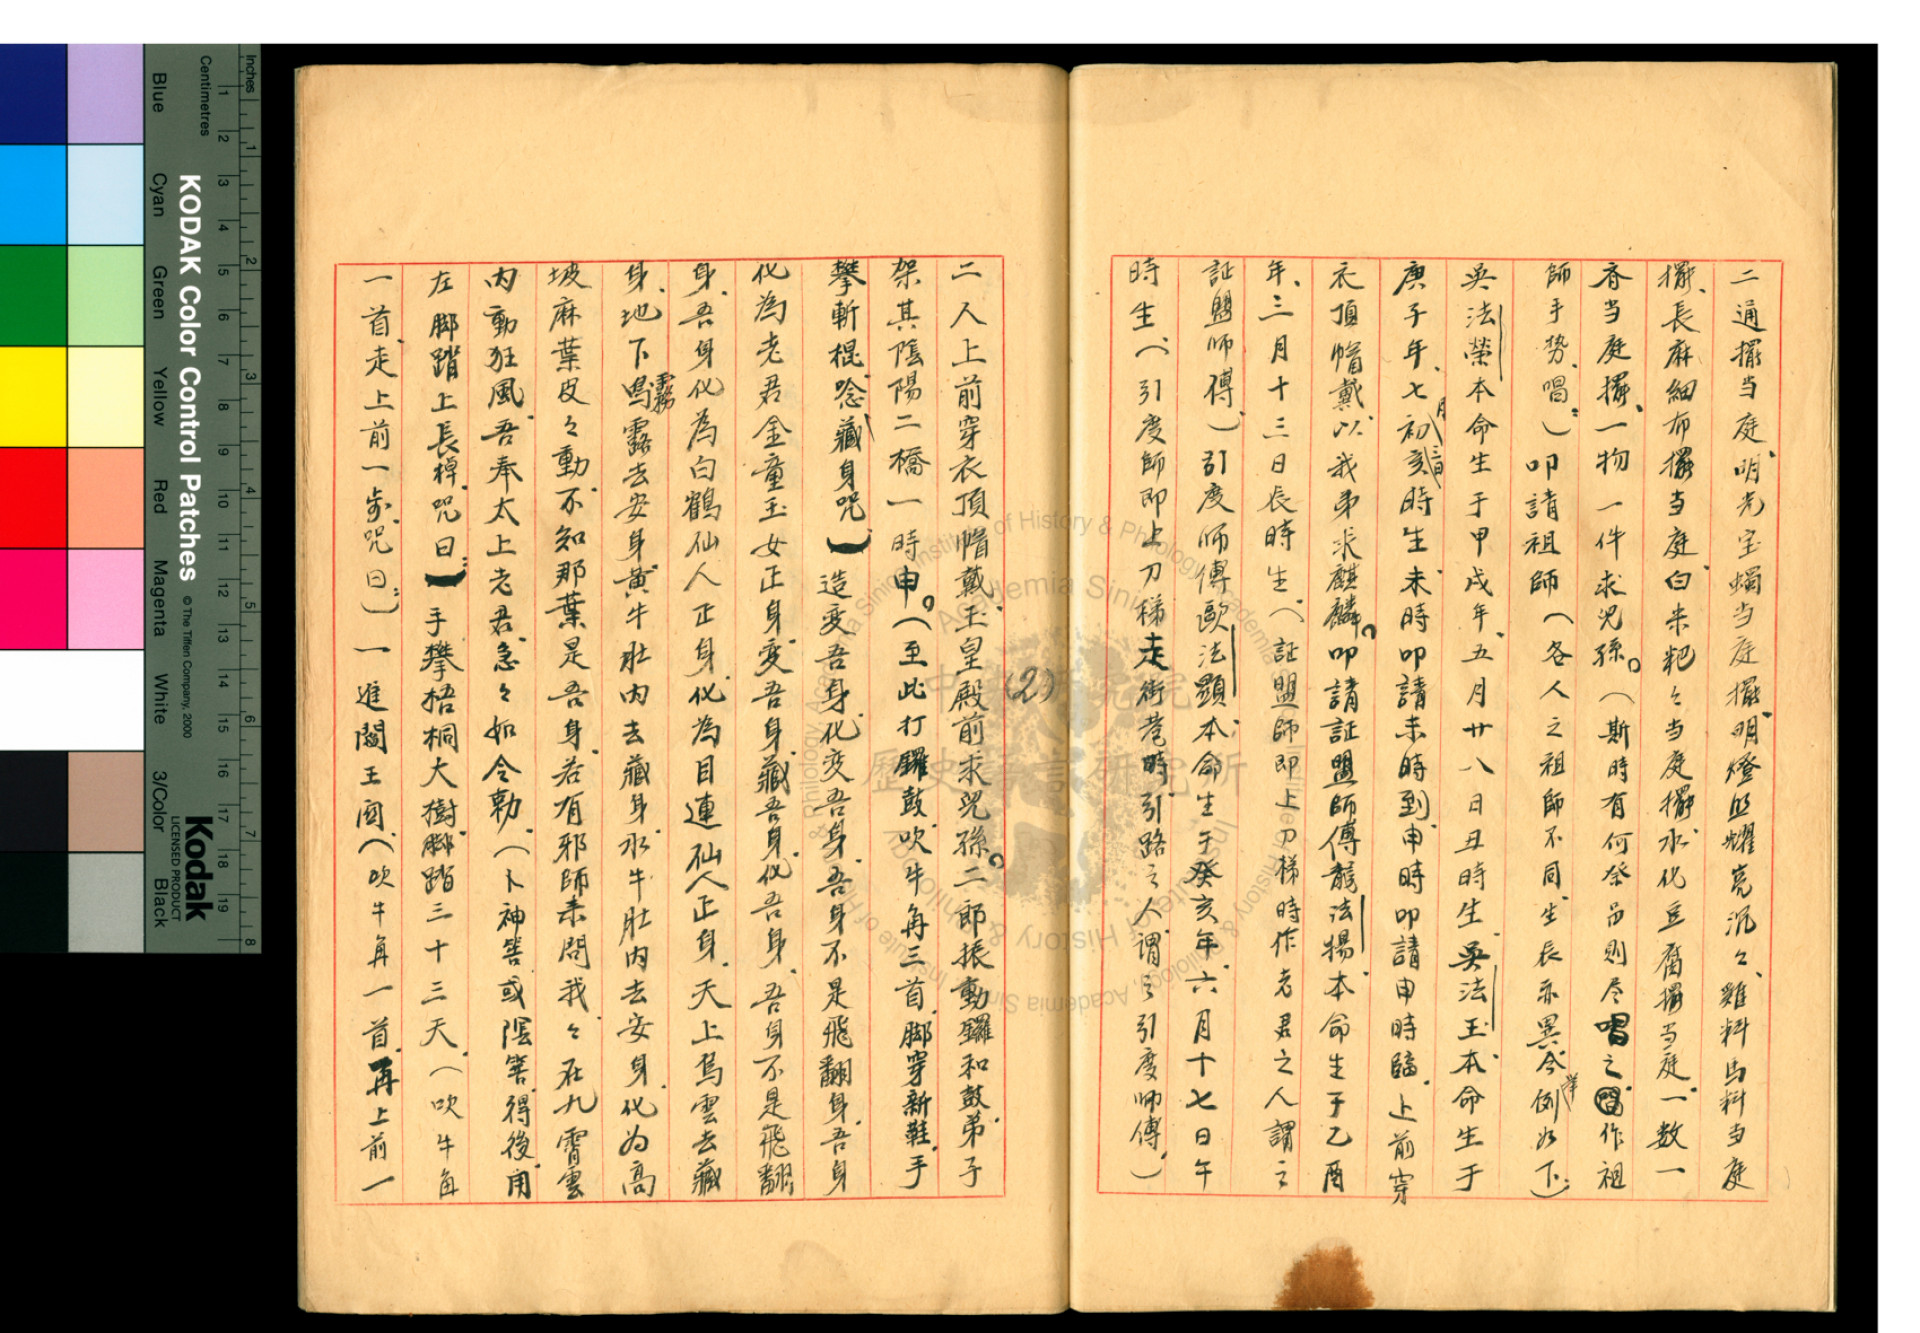 二通擺当庭、明光宝蠋当庭擺、明燈照耀亮沉々、雞料馬料当庭
擺、長麻細布擺当庭、白米粑々当庭擺、水化豆腐擺当庭、一数一
香当庭擺、一物一件求兒孫。（斯時有何祭品則尽唱之、唱作祖
師手势、唱：）叩請祖師（各人之祖師不同、生長亦異、今举例如下）：
吳法榮本命生于甲戌年、五月廿八日丑時生、吳法玉本命生于
庚子年、七月初二日亥時生、未時叩請未時到、申時叩請申時臨、上前穿
衣頂帽戴、以我弟求麒麟。叩請証盟師傅龍法揚、本命生于乙酉
年、三月十三日長時生、（証盟師即上刀梯時作老君之人謂之
証盟师傅）引度师傅歐法顕、本命生于癸亥年六月十七日午
時生（引度師即上刀梯走街巷時、引路之人、謂之引度师傅、）
二人上前穿衣頂帽戴、玉皇殿前求兒孫。二郎振動鑼和鼓、弟子
架其陰陽二橋一時申。（至此打鑼鼓、吹牛角三首、脚穿新鞋、手
攀斬棍、唸藏身咒）造変吾身、化变吾身、吾身不是飛翻身、吾身
化為老君金童玉女正身、変吾身、藏吾身、化吾身、吾身不是飛翻
身、吾身化為白鶴仙人正身、化為目連仙人正身、天上烏雲去藏
身、地下鳴霧露去安身、黃牛肚内去藏身、水牛肚内去安身、化为高
坡麻葉皮々動、不知那葉是吾身、若有邪師来問我、々在九霄雲
内動狂風、吾奉太上老君、急々如令勅、（卜神筶或陰筶、得後、用
左脚踏上長棹、咒曰：）手攀梧桐大樹、脚踏三十三天、（吹牛角
一首、走上前一步、咒曰：）一進閻王図、（吹牛角一首、再上前一
(2)
KODAK Color Control Patches
© The Tiffen Company, 2000
Kodak
LICENSED PRODUCT
Inches
Centimetres
Blue
Cyan
Green
Yellow
Red
Magenta
White
3/Color
Black
中央研究院
歷史語言研究所
Institute of History & Philology, Academia Sinica